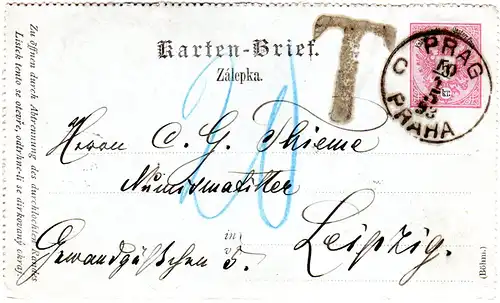 Karten-Brief.
Zálepka.
T
C PRAG
PRAHA
kr.
20
Herrn C. G. Thieme
Numismatiker
in
Leipzig.
Gewandgäßchen 5.
(Böhm.)
Zu öffnen durch Abtrennung des durchlochten Randes
Lístek tento se otevře, odtrhne-li se dírkovaný okraj.